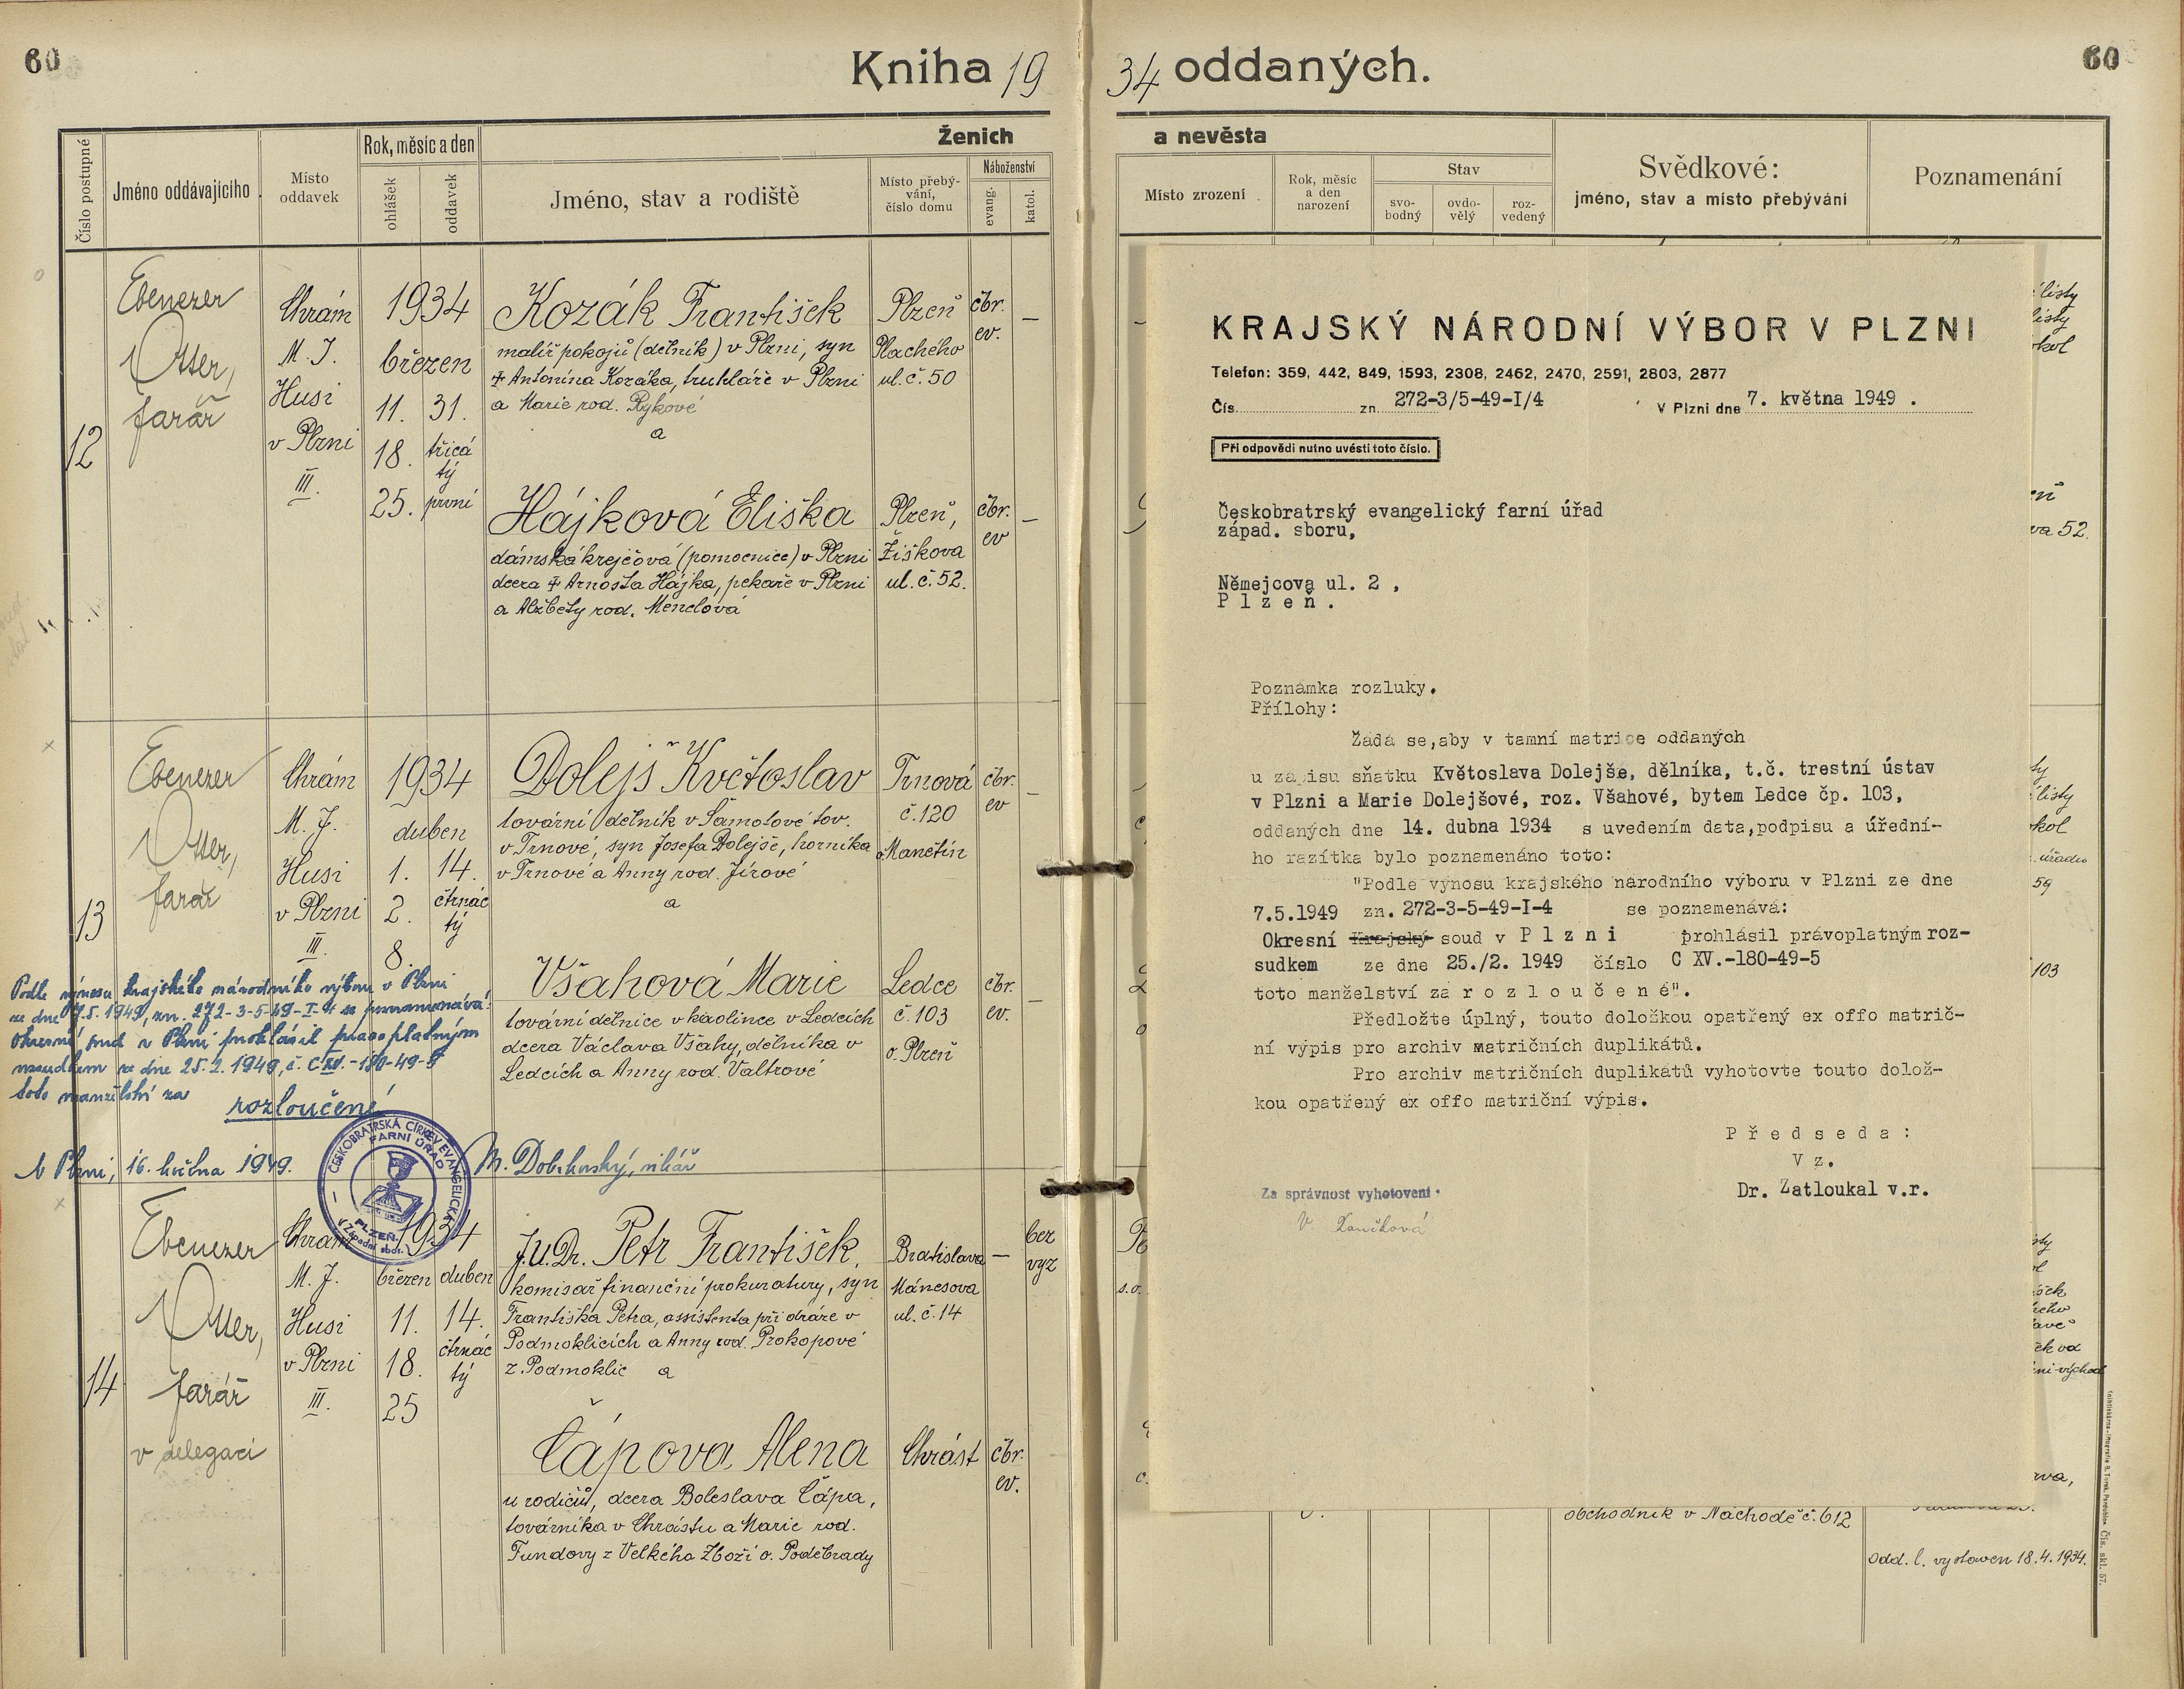 60
Kniha 1934 oddaných.
60
Číslo postupné
Jméno oddávajícího
Místo oddavek
Rok, měsíc a den
ohlášek
oddavek
Ženich
a nevěsta
Jméno, stav a rodiště
Místo přebý-
vání,
číslo domu
Náboženství
evang.
katol.
Místo zrození
Rok, měsíc
a den
narození
Stav
svo-
bodný
ovdo-
vělý
roz-
vedený
Svědkové:
jméno, stav a místo přebývání
Poznamenání
12
Ebenezer
Otter,
farář
Chrám
M. J.
Husi
v Plzni
III.
1934
březen
11. 31.
18. třicá
tý
25. první
Kozák František
malíř pokojů (dělník) v Plzni, syn
☩ Antonína Kozáka, truhláře v Plzni
a Marie rod. Rykové
a
Plzeň
Plachého
ul. č. 50
čbr.
ev.
–
Hájková Eliška
dámská krejčová (pomocnice) v Plzni
dcera ☩ Arnošta Hájka, pekaře v Plzni
a Alžběty rod. Menclová
Plzeň,
Žižkova
ul. č. 52.
čbr.
ev
–
13
Ebenezer
Otter,
farář
Chrám
M. J.
Husi
v Plzni
III.
1934
duben
1. 14.
2. čtrnác
tý
8.
Dolejš Květoslav
tovární dělník v Šamotové tov.
v Trnové, syn Josefa Dolejše, horníka
v Trnové a Anny rod. Jírové
a
Trnová
č. 120
o. Manětín
čbr.
ev
–
Všahová Marie
tovární dělnice v kaolince v Ledcích
dcera Václava Všahy, dělníka v
Ledcích a Anny rod. Valtrové
Ledce
č. 103
o. Plzeň
čbr.
ev.
–
Podle výnosu krajského národního výboru v Plzni
ze dne 7.5.1949, zn. 272-3-5-49-I-4 se poznamenává:
Okresní soud v Plzni prohlásil pravoplatným
rozsudkem ze dne 25.2.1949, č. C XV.-180-49-5
toto manželství za
rozloučené
V Plzni, 16. května 1949.
M. Dobrkuský, vikář
ČESKOBRATRSKÁ CÍRKEV EVANGELICKÁ
FARNÍ ÚŘAD
PLZEŇ.
(Západní sbor.)
14
Ebenezer
Otter,
farář
v delegaci
Chrám
M. J.
Husi
v Plzni
III.
1934
březen duben
11. 14.
18. čtrnác
tý
25
J.U.Dr. Petr František,
komisař finanční prokuratury, syn
Františka Petra, assistenta při dráze v
Podmoklicích a Anny rod. Prokopové
z Podmoklic a
Bratislava
Mánesova
ul. č. 14
–
bez
vyz
Čápova Alena
u rodičů, dcera Boleslava Čápa,
továrníka v Chrástu a Marie rod.
Fundovy z Velkého Zboží o. Poděbrady
Chrást
čbr.
ev.
KRAJSKÝ NÁRODNÍ VÝBOR V PLZNI
Telefon: 359, 442, 849, 1593, 2308, 2462, 2470, 2591, 2803, 2877
Čís. zn. 272-3/5-49-I/4 V Plzni dne 7. května 1949 .
Při odpovědi nutno uvésti toto číslo.
Českobratrský evangelický farní úřad
západ. sboru,
Němejcova ul. 2 ,
P l z e ň .
Poznámka rozluky.
Přílohy:
Žádá se,aby v tamní matrice oddaných
u zápisu sňatku Květoslava Dolejše, dělníka, t.č. trestní ústav
v Plzni a Marie Dolejšové, roz. Všahové, bytem Ledce čp. 103,
oddaných dne 14. dubna 1934 s uvedením data,podpisu a úřední-
ho razítka bylo poznamenáno toto:
"Podle výnosu krajského národního výboru v Plzni ze dne
7.5.1949 zn. 272-3-5-49-I-4 se poznamenává:
Okresní Krajský soud v P l z n i prohlásil právoplatným roz-
sudkem ze dne 25./2. 1949 číslo C XV.-180-49-5
toto manželství za r o z l o u č e n é".
Předložte úplný, touto doložkou opatřený ex offo matrič-
ní výpis pro archiv matričních duplikátů.
Pro archiv matričních duplikátů vyhotovte touto dolož-
kou opatřený ex offo matriční výpis.
P ř e d s e d a :
V z.
Dr. Zatloukal v.r.
Za správnost vyhotovení:
listy
va 52.
listy
úřadu
59
103
obchodník v Náchodě č. 612
odd. l. vystaven 18.4.1934.
Čís. skl. 57.